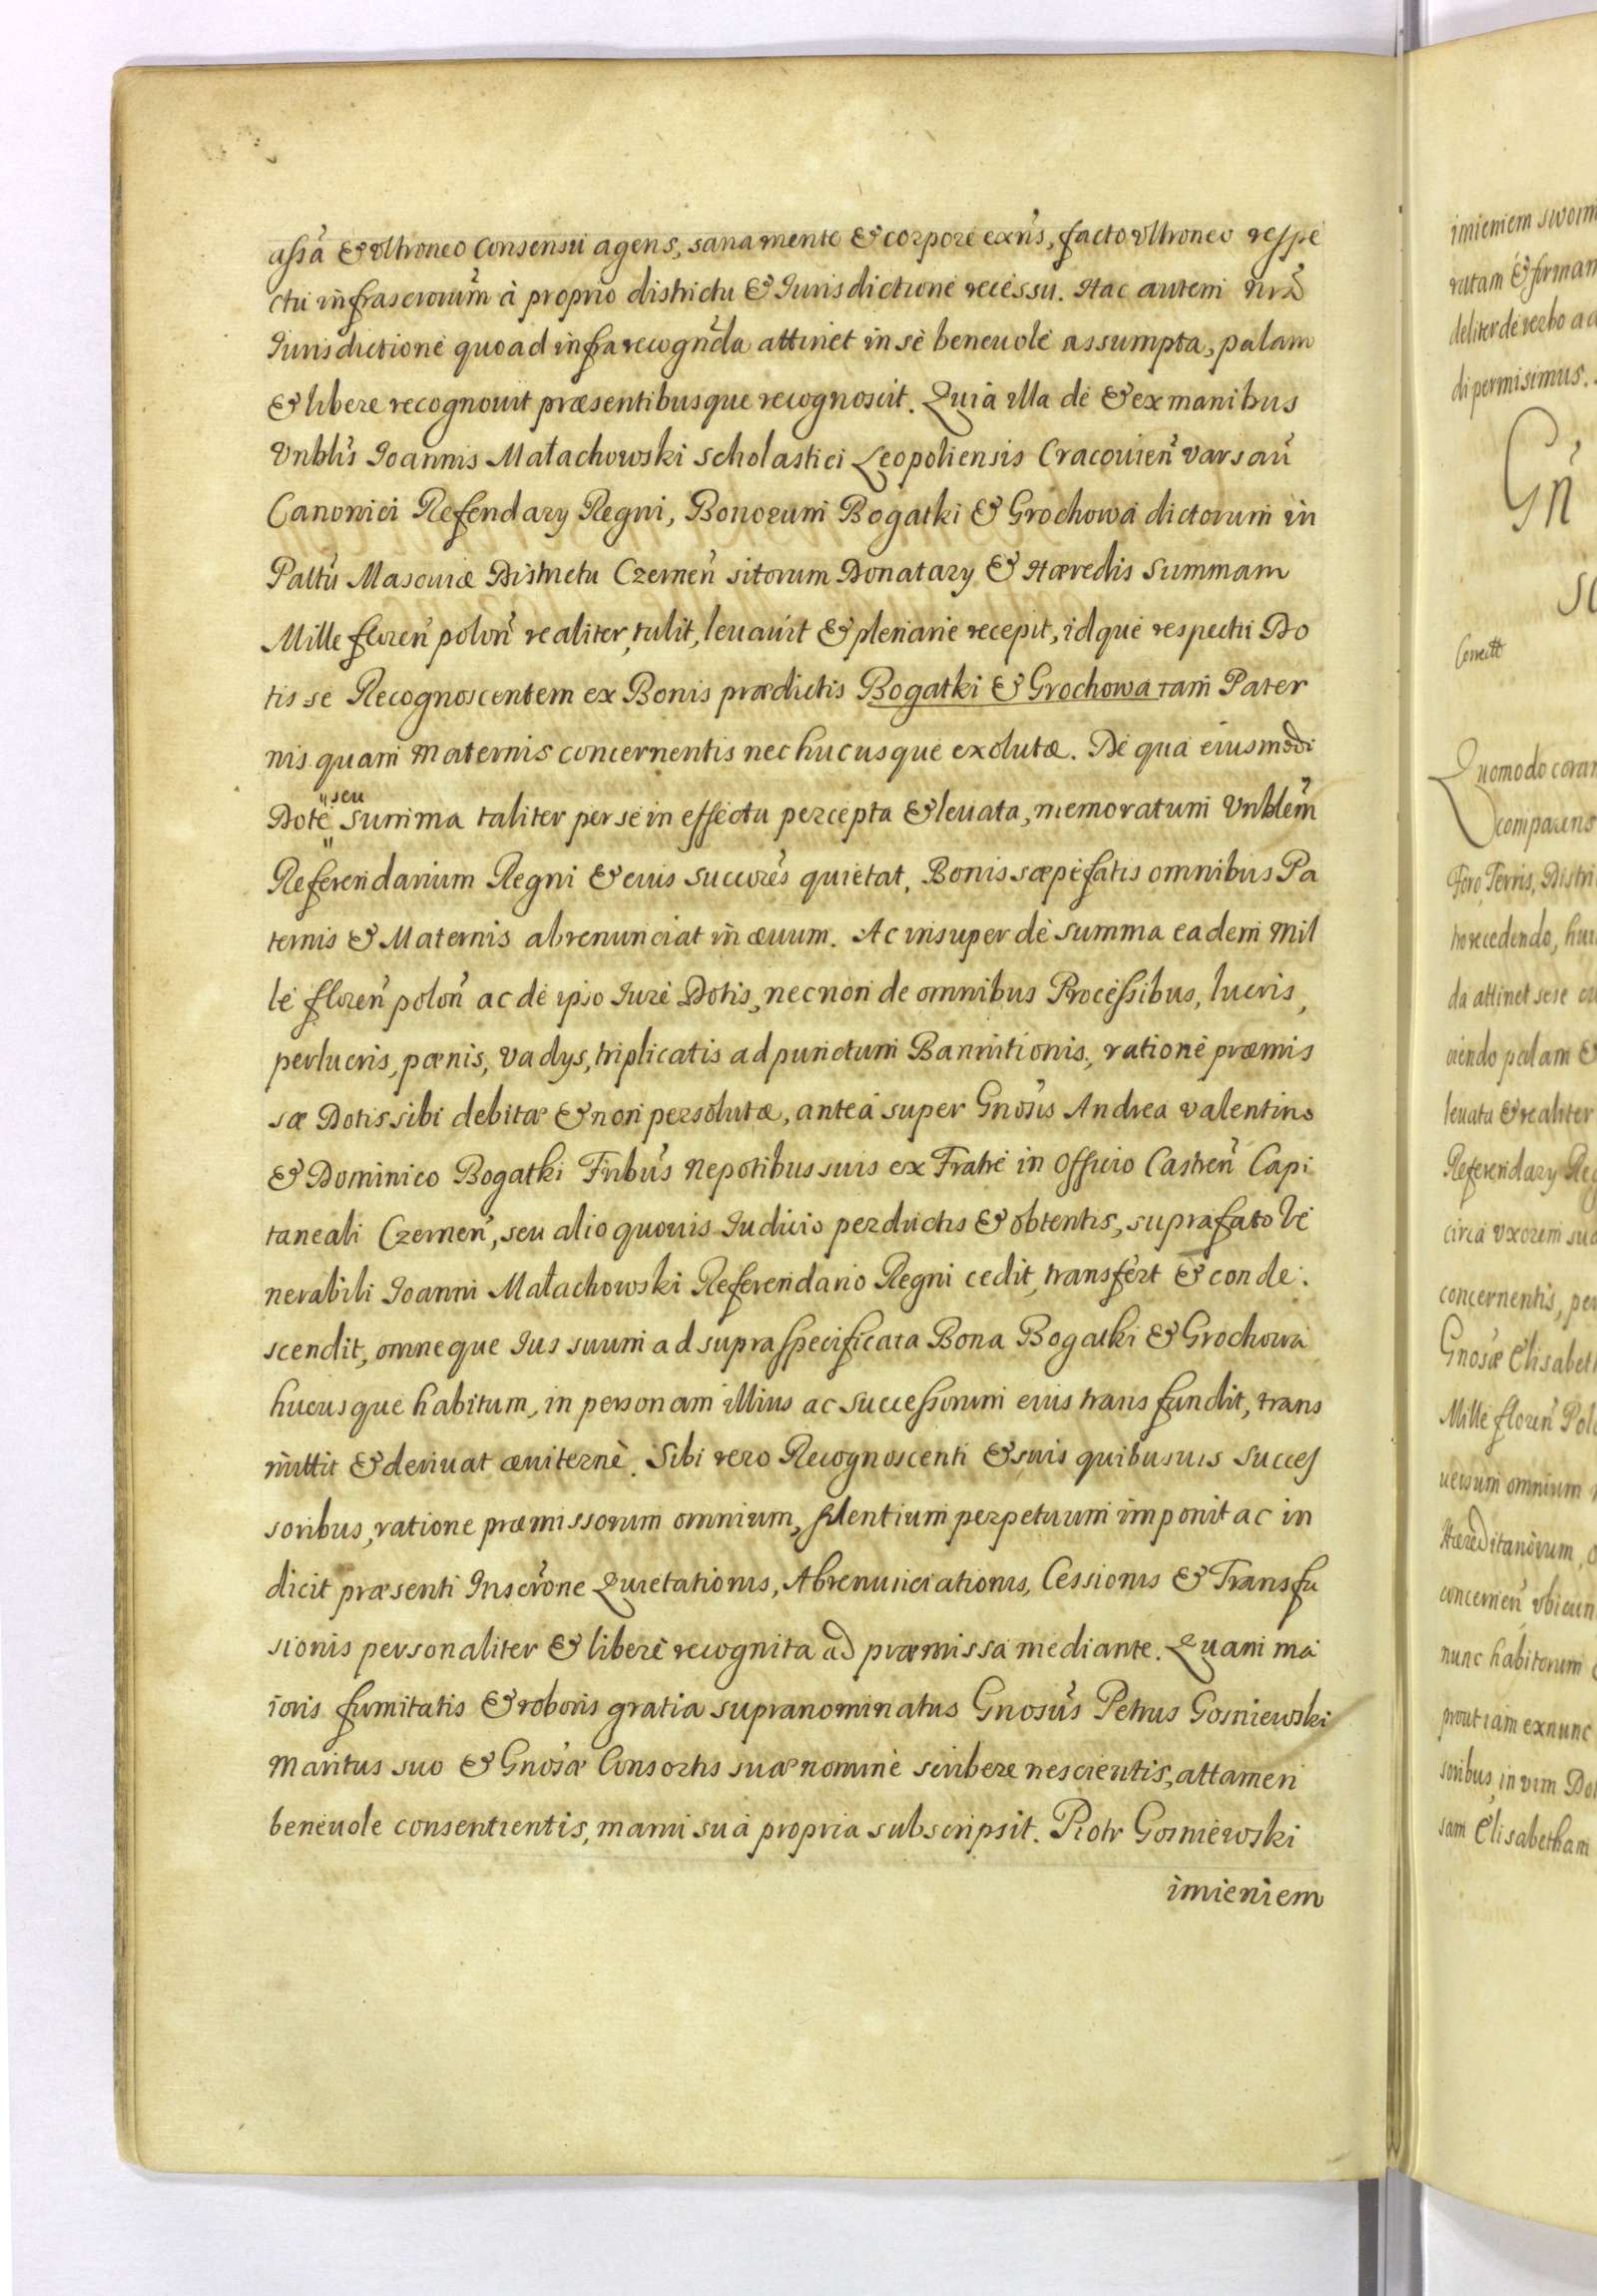 assã & vltroneo Consensu agens, sana mente & corpore exñs, facto vltroneo respe
ctu infrascrorum̃ à proprio districtu & Iurisdictione recessu. Hac autem nr̃a
Iurisdictione quoad infra recogñda attinet in se beneuole assumpta, palam
& libere recognouit præsentibusque recognoscit. Quia illa de & ex manibus
Vnblis̃ Ioannis Małachowski Scholastici Leopoliensis Cracouieñ Varsauñ
Canonici Refendarÿ Regni, Bonorum Bogatki & Grochowa dictorum in
Pallũ Masouiæ Districtu Czerneñ sitorum Donatarÿ & Hæredis Summam
Mille floreñ poloñ realiter, tulit, leuauit & plenarie recepit, idque respectu Do
tis se Recognoscentem ex Bonis prædictis Bogatki & Grochowa tam Pater
nis quam Maternis concernentis nec hucusque exolutæ. De qua eiusmodi
Dote " seu " Summa taliter per se in effectu percepta & leuata, memoratum Vnblem̃
Referendarium Regni & eius Succores̃ quietat, Bonis sæpefatis omnibus Pa
ternis & Maternis abrenunciat in æuum. Ac insuper de summa eadem Mil
le floreñ poloñ ac de ipso Iure Dotis, necnon de omnibus Processibus, lucris,
perlucris, pœnis, vadÿs, triplicatis ad punctum Bannitionis, ratione præmis
sæ Dotis sibi debitæ & non persolutæ, antea super Gnosis̃ Andrea Valentino
& Dominico Bogatki Fribus̃ Nepotibus suis ex Fratre in Officio Castreñ Capi
taneali Czerneñ, seu alio quouis Iudicio perductis & obtentis, suprafato Ve
nerabili Ioanni Małachowski Referendario Regni cedit, transfert & conde:
scendit, omneque Ius suum ad supraspecificata Bona Bogatki & Grochowa
hucusque habitum, in personam illius ac Successorum eius transfundit, trans
mittit & deriuat æuiternè. Sibi vero Recognoscenti & suis quibusuis Succes
soribus, ratione præmissorum omnium, silentium perpetuum imponit ac in
dicit præsenti Inscrõne Quietationis, Abrenunciationis, Cessionis & Transfu
sionis personaliter & liberè recognita ad præmissa mediante. Quam ma
ioris firmitatis & roboris gratia supranominatus Gnosus̃ Petrus Gosniewski
Maritus suo & Gnosæ̃ Consortis suæ nomine scribere nescientis, attamen
beneuole consentientis, manu sua propria subscripsit. Piotr Gosniewski
imieniem
imieniem swoim
ratam & firmam
deliter de verbo ad
di permisimus.
Gñ
Quomodo coram
comparens
Foro, Terris, Distri
leuata & realiter
Referendarÿ Reg
circa vxorem sua
concernentis, per
Gnosæ̃ Elisabeth
Mille floreñ Pol
uersum omnium
Hæreditariorum,
concerneñ vbicun
nunc habitorum
prout iam exnunc
soribus, in vim Do
sam Elisabetham